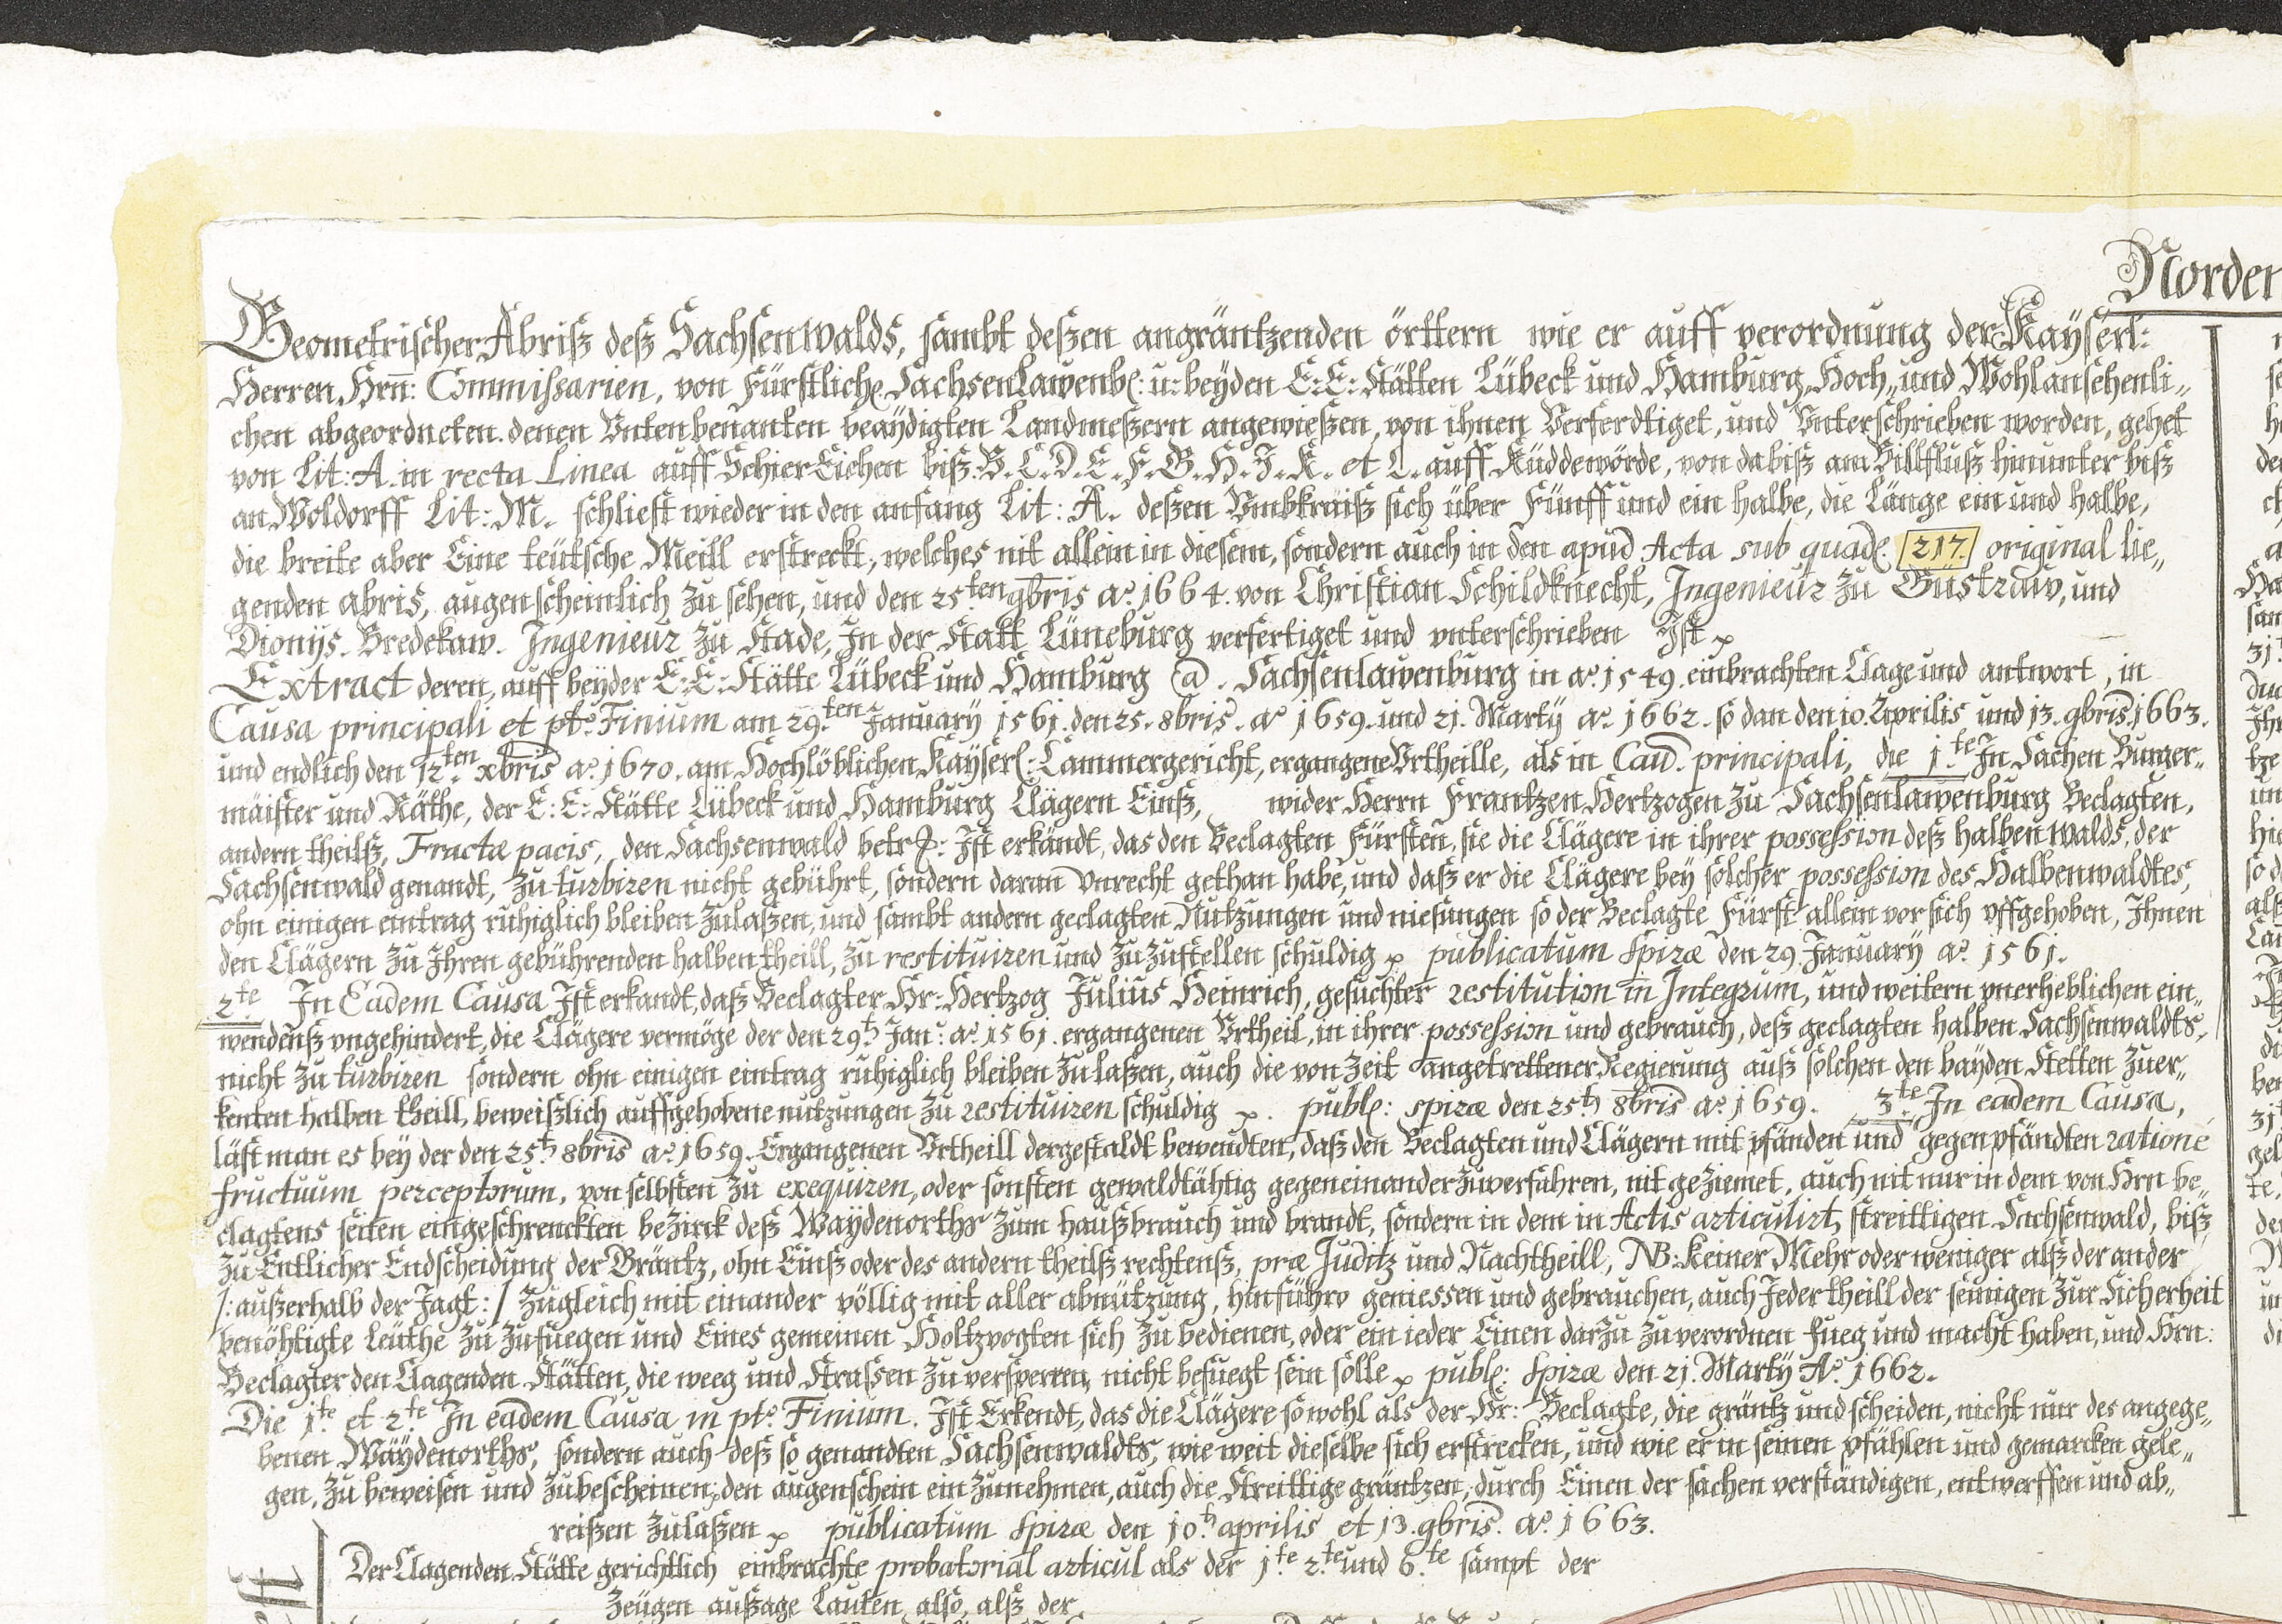 Norden
Geometrischer Abriß deß Sachsenwalds, sambt deßen angräntzenden örttern wie er auff verordnung der Kayserl:
Herren Hrn: Commissarien, von Fürstlich. SachsenLawenb: u: beyden E: E: Stätten Lübeck und Hamburg, Hoch„ und Wohlansehenli„
chen abgeordneten. denen Unten benanten beaydigten Landmeßern angewießen, von ihnen Verferdtiget, und Unterschrieben worden, gehet
von Lit: A. in recta Linea auff Schier Eichen biß. B. C. D. E. F. G. H. J. K. et L. auff Küddewörde, von da biß am Billfluß hinunter biß
an Woldorff Lit: M. schliest wieder in den anfang Lit: A. deßen Umbkraiß sich über Fünff und ein halbe, die Länge ein und halbe,
die breite aber Eine teütsche Meill erstreckt, welches nit allein in diesem, sondern auch in den apud Acta sub quad. 217. original lie„
genden abris, augenscheinlich zu sehen, und den 25.ten 9bris aº. 1664. von Christian Schildknecht, Ingenieur zu Güstraw, und
Dionys. Bredekaw. Ingenieur zu Stade, In der Statt Lüneburg verfertiget und vnterschrieben Ist
Extract deren, auff beyder E: E: Stätte Lübeck und Hamburg Ca. Sachsenlawenburg in aº. 1549. einbrachten Clage und antwort, in
Causa principali et ptº. Finium am 29.ten January 1561. den 25. 8bris. aº 1659. und 21. Marty aº. 1662. so dan den 10. Aprilis und 13. 9bris 1663.
und endlich den 12.ten xbris aº. 1670. am Hochlöblichen Kayserl: Cammergericht, ergangene Urtheille, als in Cau. principali, die 1.te In Sachen Burger„
mäister und Räthe, der E: E: Stätte Lübeck und Hamburg Clägern Einß, wider Herrn Frantzen Hertzogen zu Sachsenlawenburg Beclagten,
andern theilß, Fractæ pacis, den Sachsenwald betr: Ist erkändt, das den Beclagten Fürsten, sie die Clägere in ihrer possession deß halben walds, der
Sachsenwald genandt, zu turbiren nicht gebührt, sondern daran Unrecht gethan habe, und daß er die Clägere bey solcher possession des Halbenwaldtes,
ohn einigen eintrag ruhiglich bleiben zulaßen, und sambt andern geclagten Nutzungen und niesungen so der Beclagte Fürst allein vor sich vffgehoben, Ihnen
den Clägern zu Ihren gebührenden halben theill, zu restituiren und zuzustellen schuldig publicatum Spiræ den 29. January aº. 1561.
2.te In Eadem Causa Ist erkandt, daß Beclagter Hr: Hertzog Julius Heinrich, gesuchter restitution in Integrum, und weitern vnerheblichen ein„
wendenß vngehindert, die Clägere vermöge der den 29.t Jan: aº. 1561. ergangenen Urtheil, in ihrer possession und gebrauch, deß geclagten halben Sachsenwaldts,
nicht zu turbiren sondern ohn einigen eintrag ruhiglich bleiben zulaßen, auch die von Zeit angetrettener Regierung auß solchen den bayden Stetten Zuer„
kenten halben theill, beweißlich auffgehobene nutzungen zu restituiren schuldig. publ: spiræ den 25.t 8bris aº. 1659. 3.te In eadem Causa,
läst man es bey der den 25.t 8bris aº. 1659. Ergangenen Urtheill dergestaldt bewendten, daß den Beclagten und Clägern mit pfänden und gegenpfändten ratione
fructuum perceptorum, von selbsten zu exequiren, oder sonsten gewaldtähtig gegeneinander zuverfahren, nit geziemet, auch nit nur in dem von Hrn be„
clagtens seiten eingeschrenckten bezirck deß Waydenorths zum haußbrauch und brandt, sondern in dem in Actis articulirt, streittigen Sachsenwald, biß
zu Entlicher Endscheidung der Gräntz, ohn Einß oder des andern theilß rechtenß, præ Juditz und Nachtheill, NB: Keiner Mehr oder weniger alß der ander
/: außerhalb der Jagt: / zugleich mit einander völlig mit aller abnützung, hinführo geniessen und gebrauchen, auch Jeder theill der seinigen zur Sicherheit
benöhtigte Leüthe zu zufuegen und Eines gemeinen Holtzvogten sich zu bedienen, oder ein ieder Einen darzu zu verordnen fueg und macht haben, und Hrn:
Beclagter den Clagenden Stätten, die weeg und Strassen zu versperren, nicht befuegt sein solle publ: Spiræ den 21. Marty Aº. 1662.
Die 1.te et 2.te In eadem Causa in ptº. Finium. Ist Erkendt, das die Clägere so wohl als der Hr: Beclagte, die gräntz und scheiden, nicht nur des angege„
benen Wäydenorths, sondern auch deß so genandten Sachsenwaldts, wie weit dieselbe sich erstrecken, und wie er in seinen pfählen und gemarcken gele„
gen, zu beweisen und zubescheinen, den augenschein ein zunehmen, auch die Streittige gräntzen, durch Einen der sachen verständigen, entwerffen und ab„
reißen zulaßen publicatum Spiræ den 10.t aprilis et 13. 9bris. aº. 1663.
Der Clagenden Stätte gerichtlich einbrachte probatorial articul als der 1.te 2.te und 6.te sampt der
Zeügen außage Lauten also, alß der